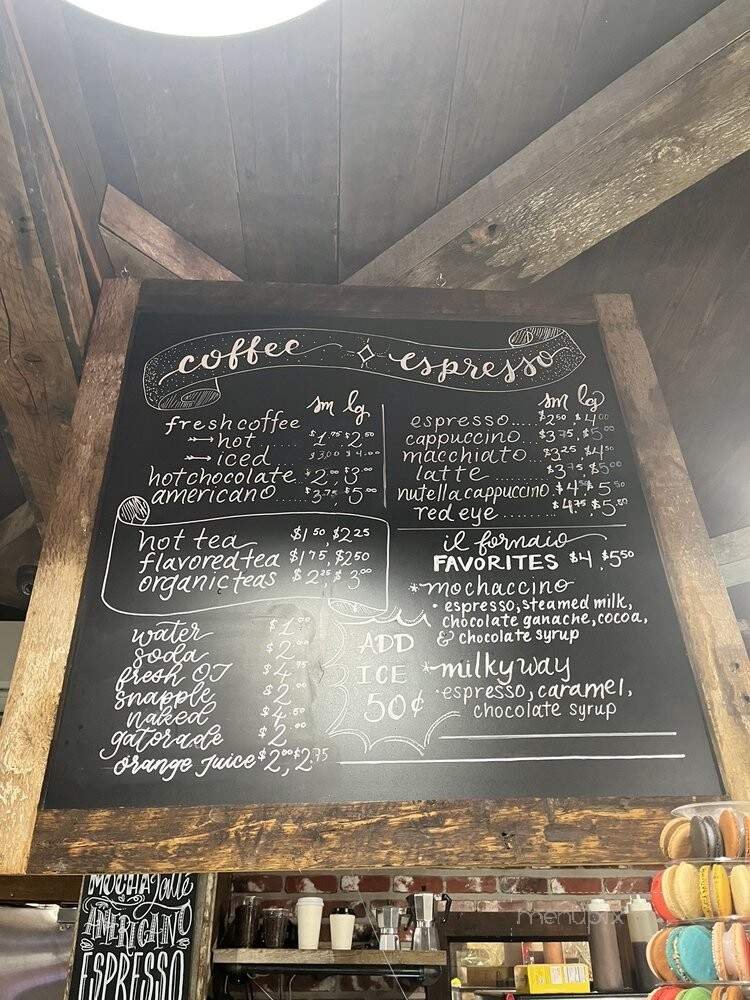 coffee espresso
sm lg
fresh coffee
hot..... $1.75 $2.50
iced $3.00 $4.00
hot chocolate.. $2.00 $3.00
americano... $3.75, $5.00
sm lg
espresso.... $2.50 $4.00
cappuccino.. $3.75, $5.00
macchiato... $3.25 $4.50
latte........ $3.75, $5.00
nutella cappuccino. $4.50 $5.50
red eye......... $4.75, $5.50
hot tea $1.50, $2.25
flavored tea $1.75, $2.50
organic teas $2.25, $3.00
il fornaio
FAVORITES $4, $5.50
*mochaccino
• espresso, steamed milk,
chocolate ganache, cocoa,
& chocolate syrup
*milkyway
•espresso, caramel,
chocolate syrup
water $1.00
soda $2.00
fresh OJ $4.75
snapple $2.00
naked $4.50
gatorade $2.00
orange juice $2.00 $2.75
ADD
ICE
50¢
MOCHA Latté
AMERICANO
ESPRESSO
menupix